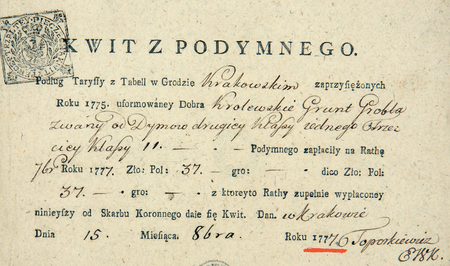 KWIT Z PODYMNEGO.
Podług Taryffy z Tabell w Grodzie Krakowskim zaprzysiężonych
Roku 1775. uformowaney Dobra Krolewskie Grunt Grobla
zwany od Dymow drugiey Klassy iednego Trze
ciey Klassy 11 — — Podymnego zapłaciły na Rathę
7br Roku 1777. Zło: Pol: 37. — gro: — dico Zło: Pol:
37. — gro: — z ktoreyto Rathy zupełnie wypłaconey
ninieyszy od Skarbu Koronnego daie się Kwit. Dan. w Krakowie
Dnia 15. Miesiąca. 8bra. Roku 1777.